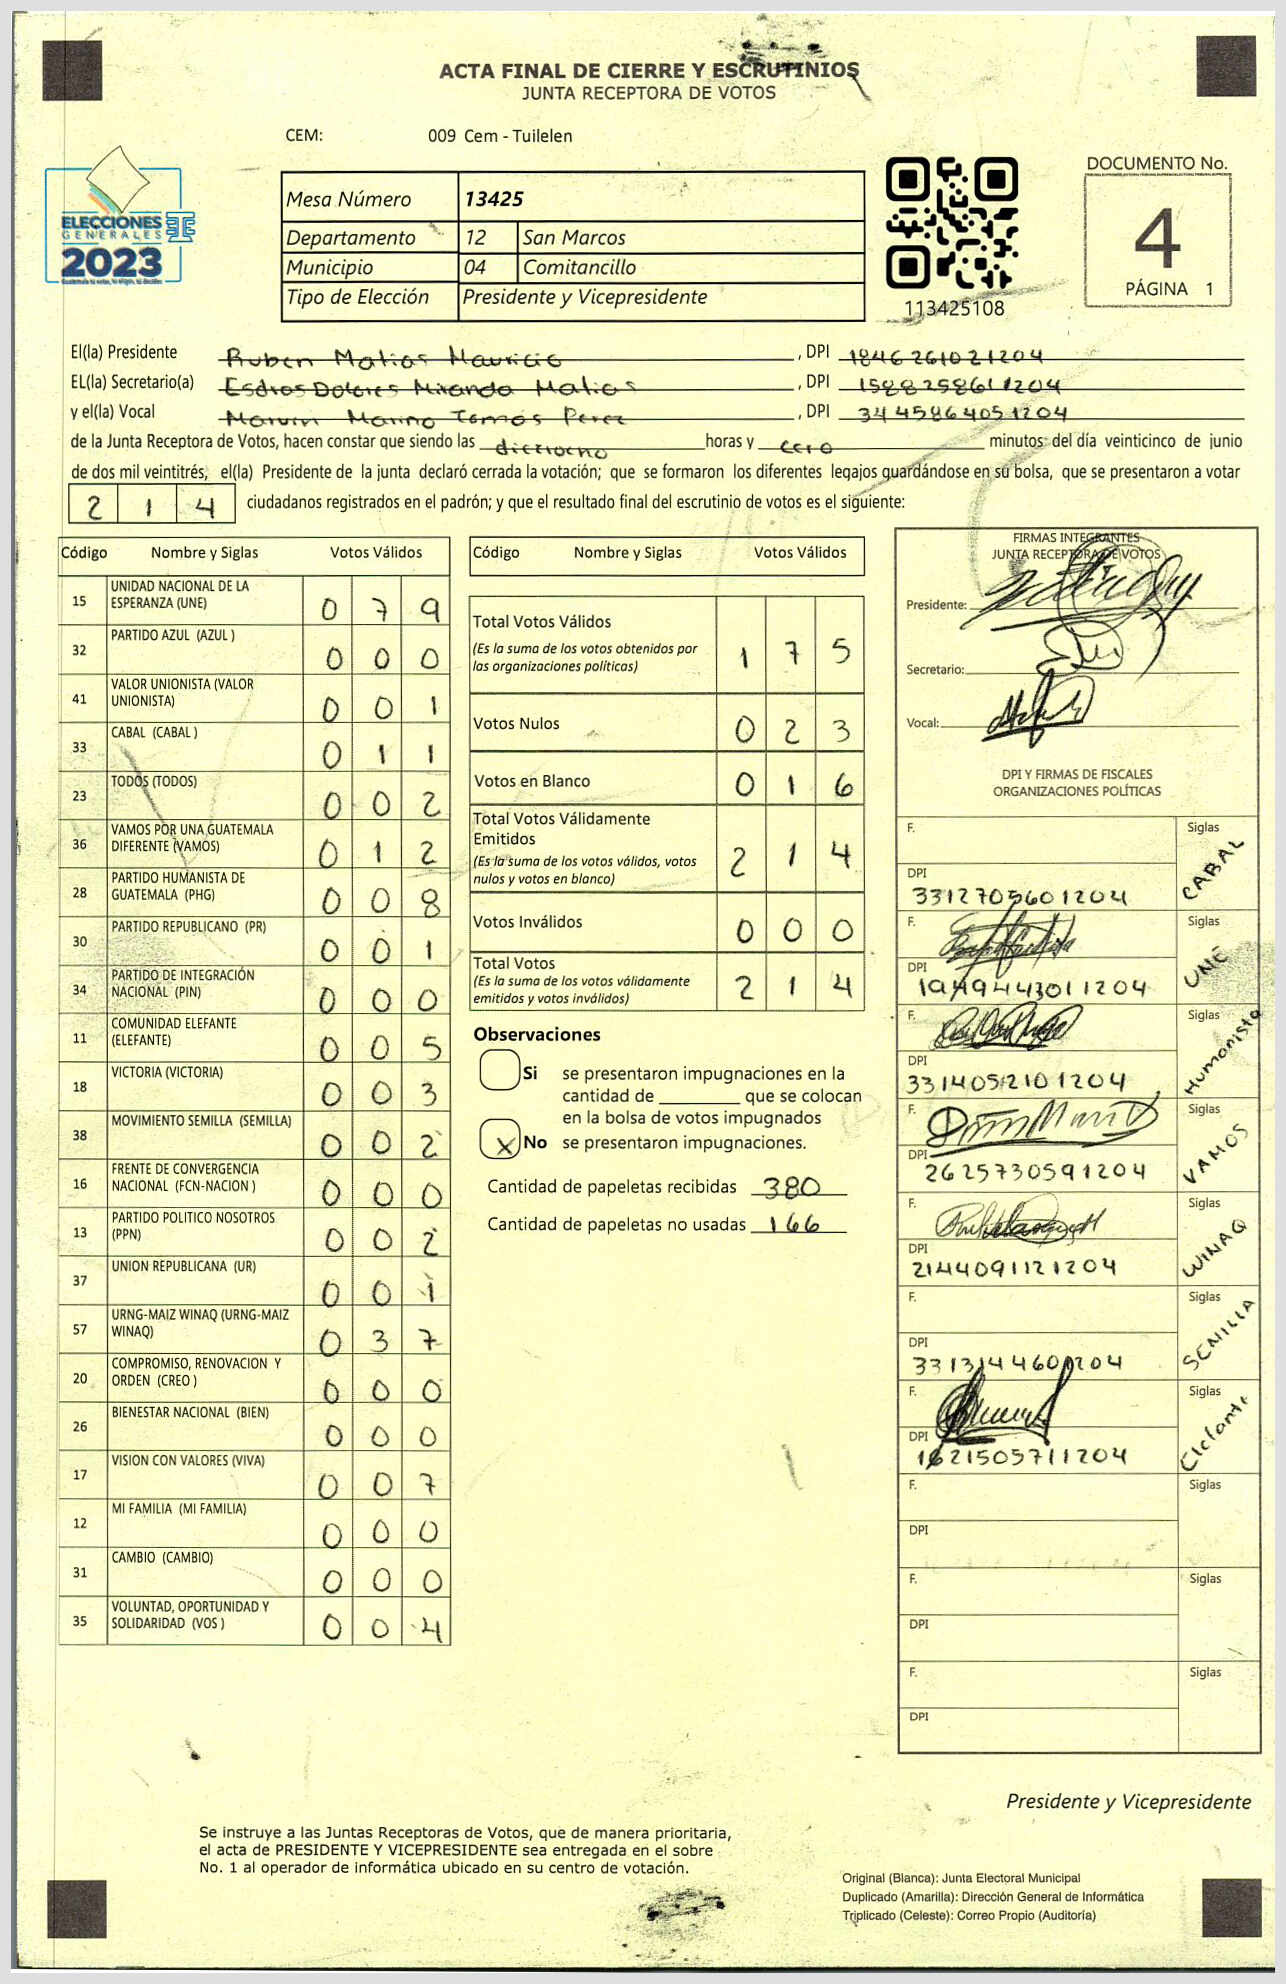 ACTA FINAL DE CIERRE Y ESCRUTINIOS
JUNTA RECEPTORA DE VOTOS
CEM: 009 Cem - Tuilelen
ELECCIONES
GENERALES
2023
Mesa Número 13425
Departamento 12 San Marcos
Municipio 04 Comitancillo
Tipo de Elección Presidente y Vicepresidente
113425108
DOCUMENTO No.
4
PÁGINA 1
El(la) Presidente Ruben Matias Mauricio , DPI 1846261021204
EL(la) Secretario(a) Esdras Dolores Miranda Matias , DPI 1588258611204
y el(la) Vocal Marvin Marino Tomás Perez , DPI 3445864051204
de la Junta Receptora de Votos, hacen constar que siendo las dieciocho horas y cero minutos del día veinticinco de junio
de dos mil veintitrés, el(la) Presidente de la junta declaró cerrada la votación; que se formaron los diferentes legajos guardándose en su bolsa, que se presentaron a votar
2 1 4 ciudadanos registrados en el padrón; y que el resultado final del escrutinio de votos es el siguiente:
Código Nombre y Siglas Votos Válidos
15 UNIDAD NACIONAL DE LA
ESPERANZA (UNE) 0 7 9
32 PARTIDO AZUL (AZUL ) 0 0 0
41 VALOR UNIONISTA (VALOR
UNIONISTA) 0 0 1
33 CABAL (CABAL ) 0 1 1
23 TODOS (TODOS) 0 0 2
36 VAMOS POR UNA GUATEMALA
DIFERENTE (VAMOS) 0 1 2
28 PARTIDO HUMANISTA DE
GUATEMALA (PHG) 0 0 8
30 PARTIDO REPUBLICANO (PR) 0 0 1
34 PARTIDO DE INTEGRACIÓN
NACIONAL (PIN) 0 0 0
11 COMUNIDAD ELEFANTE
(ELEFANTE) 0 0 5
18 VICTORIA (VICTORIA) 0 0 3
38 MOVIMIENTO SEMILLA (SEMILLA) 0 0 2
16 FRENTE DE CONVERGENCIA
NACIONAL (FCN-NACION ) 0 0 0
13 PARTIDO POLITICO NOSOTROS
(PPN) 0 0 2
37 UNION REPUBLICANA (UR) 0 0 1
57 URNG-MAIZ WINAQ (URNG-MAIZ
WINAQ) 0 3 7
20 COMPROMISO, RENOVACION Y
ORDEN (CREO ) 0 0 0
26 BIENESTAR NACIONAL (BIEN) 0 0 0
17 VISION CON VALORES (VIVA) 0 0 7
12 MI FAMILIA (MI FAMILIA) 0 0 0
31 CAMBIO (CAMBIO) 0 0 0
35 VOLUNTAD, OPORTUNIDAD Y
SOLIDARIDAD (VOS ) 0 0 4
Código Nombre y Siglas Votos Válidos
Total Votos Válidos
(Es la suma de los votos obtenidos por
las organizaciones políticas) 1 7 5
Votos Nulos 0 2 3
Votos en Blanco 0 1 6
Total Votos Válidamente
Emitidos
(Es la suma de los votos válidos, votos
nulos y votos en blanco) 2 1 4
Votos Inválidos 0 0 0
Total Votos
(Es la suma de los votos válidamente
emitidos y votos inválidos) 2 1 4
Observaciones
Si se presentaron impugnaciones en la
cantidad de ________ que se colocan
en la bolsa de votos impugnados
X No se presentaron impugnaciones.
Cantidad de papeletas recibidas 380
Cantidad de papeletas no usadas 166
FIRMAS INTEGRANTES
JUNTA RECEPTORA DE VOTOS
Presidente:
Secretario:
Vocal:
DPI Y FIRMAS DE FISCALES
ORGANIZACIONES POLÍTICAS
F. Siglas CABAL
DPI
3312705601204
F. Siglas UNE
DPI
1949443011204
F. Siglas Humanista
DPI
3314052101204
F. Siglas VAMOS
DPI
2625730591204
F. Siglas WINAQ
DPI
2144091121204
F. Siglas SEMILLA
DPI
3313144601204
F. Siglas Elefante
DPI
1621505711204
F. Siglas
DPI
F. Siglas
DPI
F. Siglas
DPI
Presidente y Vicepresidente
Se instruye a las Juntas Receptoras de Votos, que de manera prioritaria,
el acta de PRESIDENTE Y VICEPRESIDENTE sea entregada en el sobre
No. 1 al operador de informática ubicado en su centro de votación.
Original (Blanca): Junta Electoral Municipal
Duplicado (Amarilla): Dirección General de Informática
Triplicado (Celeste): Correo Propio (Auditoría)